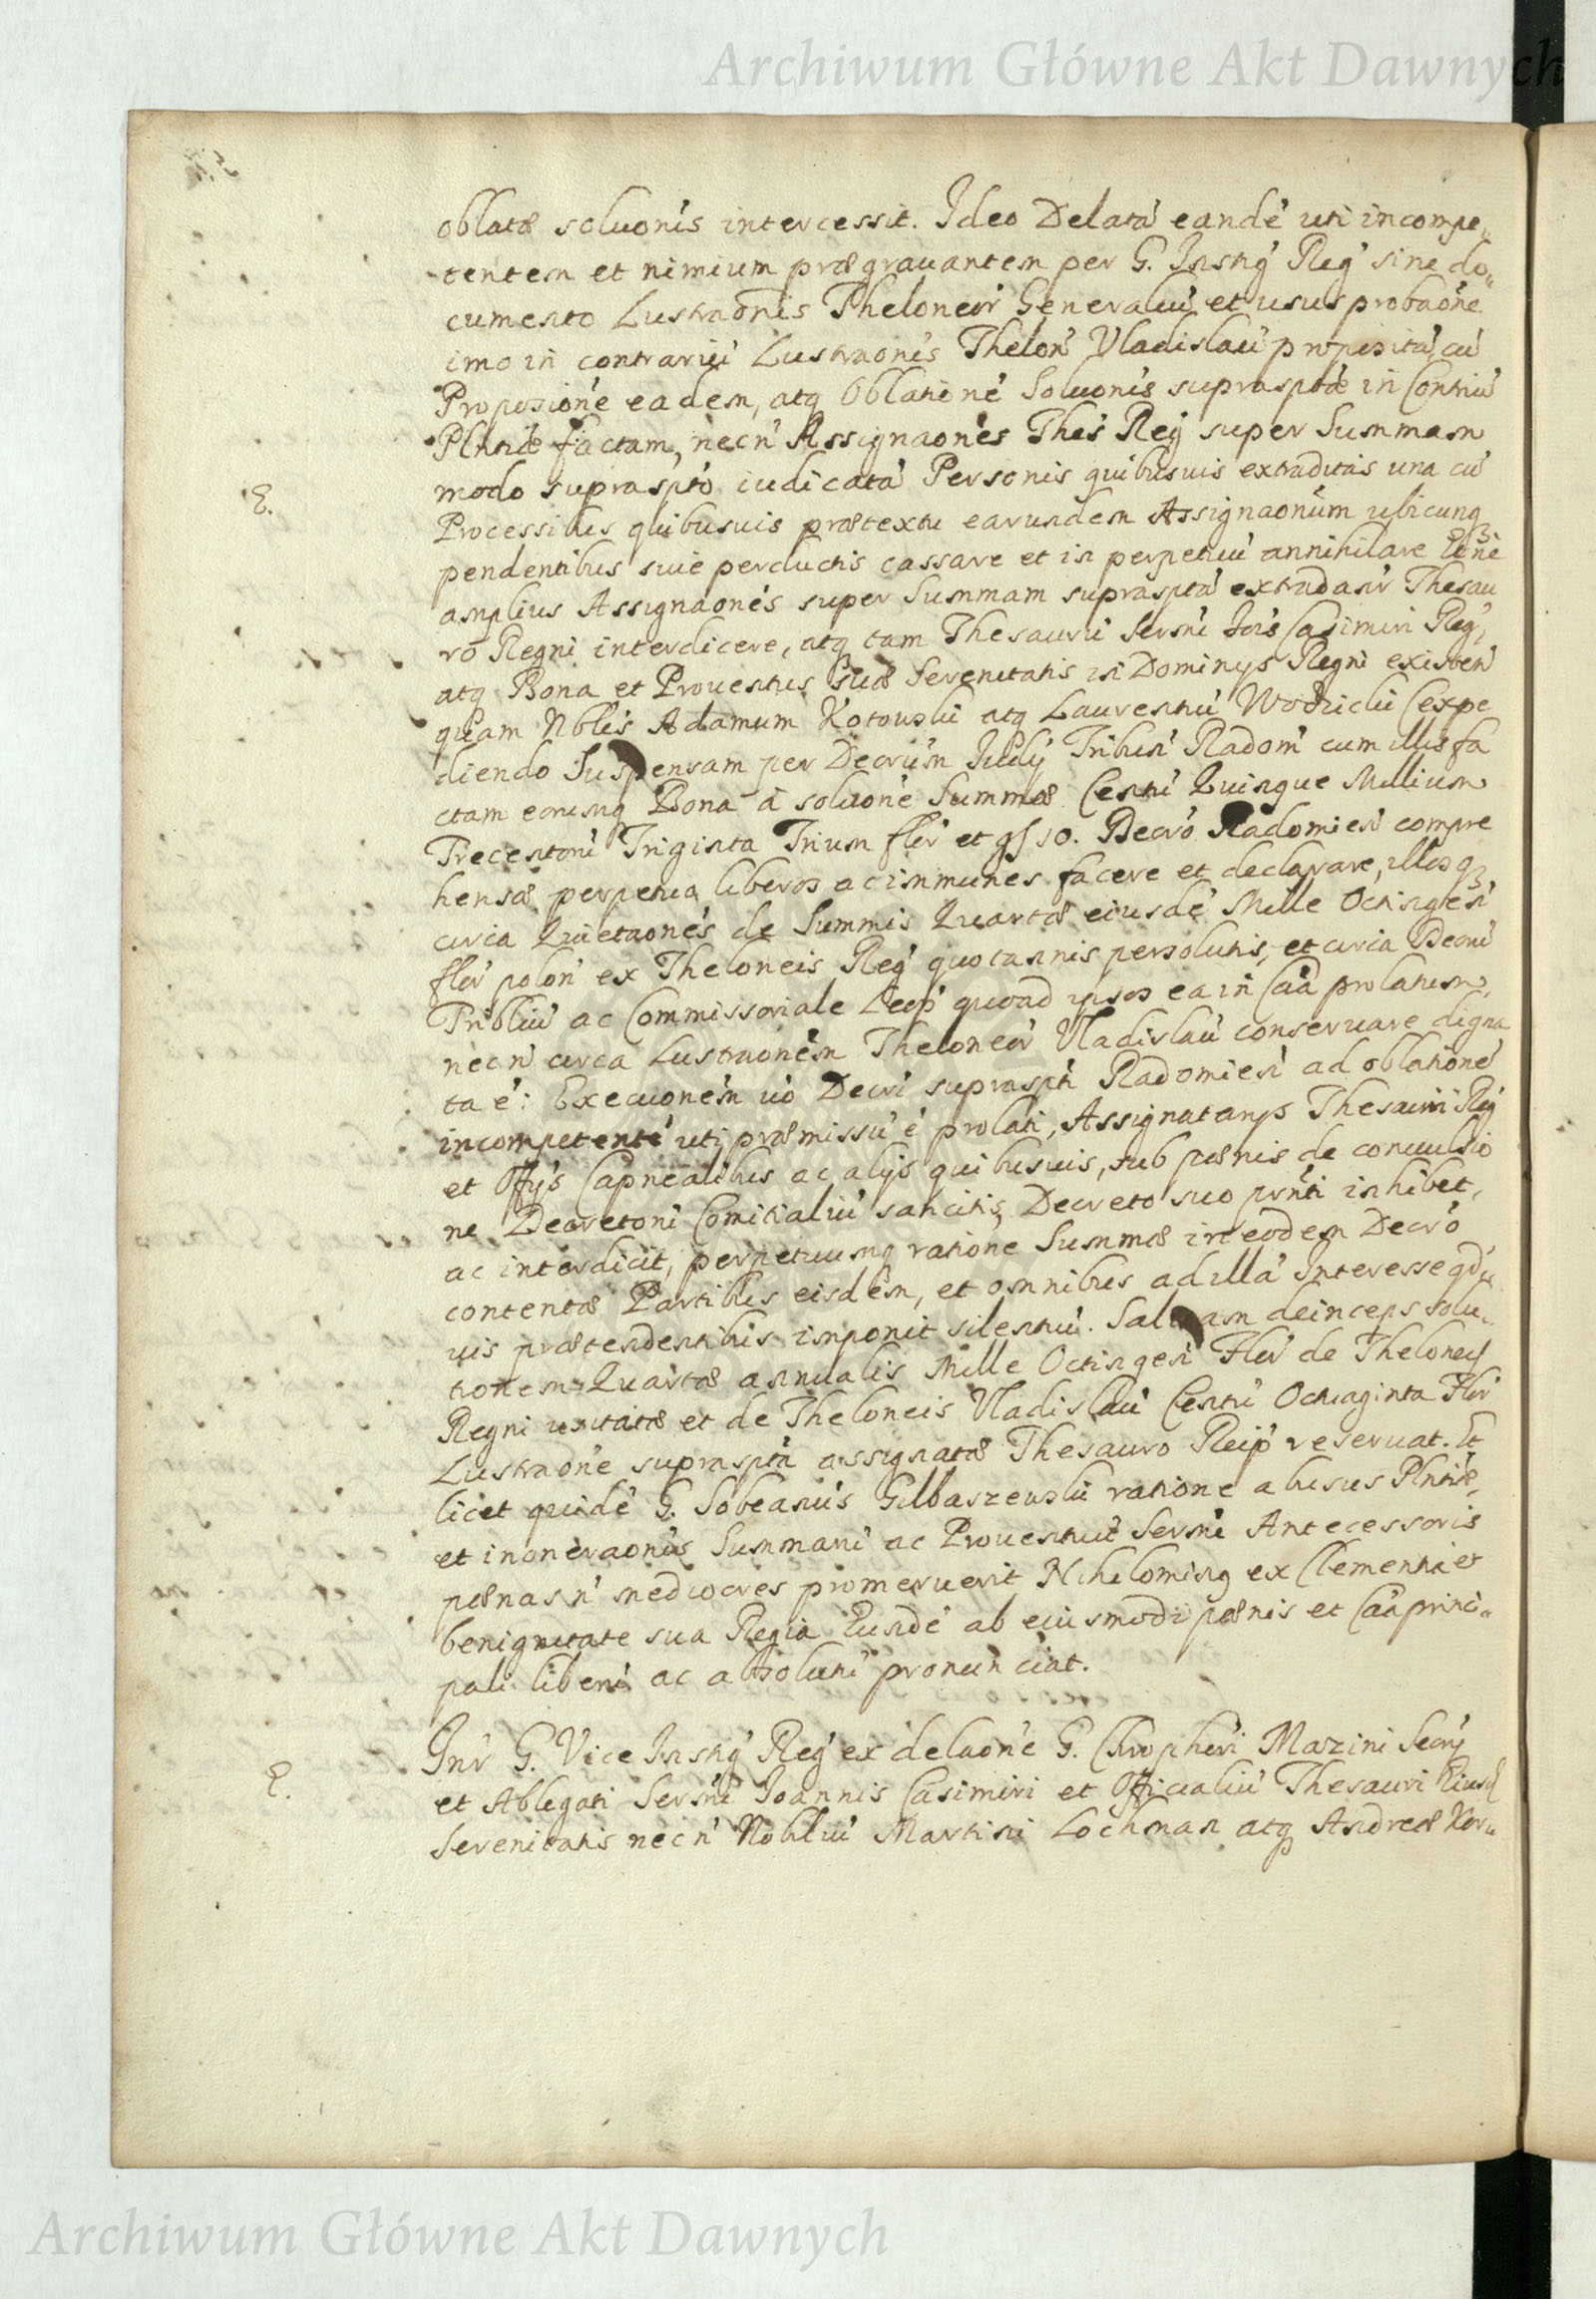 Archiwum Główne Akt Dawnych
oblatæ soluonis intercessit. Ideo Delatā eandē uti incompe„
tentem et nimium prægrauantem per G. Instig̃ Reg̃ sine do„
cumento Lustraonis Theloneor̃ Generaliū et usus probaōne
imo in contrariū Lustraonis Thelon̄ Vladislaū propositā cū
Proposiōne eadem, atq Oblationē Soluonis suprasptæ in Contriū
Plntiæ factam, necn̄ Assignaones Thes̄ Reg̃ super Summam
modo supraspto iudicatā Personis quibusuis extraditas una cū
E.
Processibus quibusuis prætextu earundem Assignaonum ubicunq
pendentibus siue perductis cassare et in perpetuū annihilare
amplius Assignaones super Summam supraspta extradant̄ Thesau
ro Regni interdicere, atq tam Thesauri Sersni Jois Casimiri Reg̃,
atq Bona et Prouentus suæ Serenitatis in Dominys Regni existen̄
quam Nbles Adamum Kotowski atq Laurentiū Wodzicki Cexpe
diendo Suspensam per Decrūm Judiy Tribun̄ Radom̄ cum illis fa
ctam eorumq Bona a soluone Summæ Centū Quinque Millium
Trecentorū Triginta Trium flor̄ et gs 10. Decrō Radomien̄ compre
hensæ perpetuo liberos ac immunes facere et declarare, illosq
circa Quietaones de Summis Quartæ eiusdē Mille Octingen̄
flor̄ polon̄ ex Theloneis Reg̃ quotannis persolutis, et circa Decrū
Tribliū ac Commissoriale Leop̄ quoad ipsos ea in Caā prolatum,
necn̄ circa Lustraonem Theloneor̄ Vladislaū conseruare digna
ta ē: Execuonem uō Decri supraspti Radomien̄ ad oblationē
incompetentē uti præmissū ē prolati, Assignatarys Thesauri Reg̃
et Offys Capnealibus ac alys quibusuis, sub pænis de conuulsio
ne Decretorū Comitialiū sancitis, Decreto suo prnti inhibet,
ac interdicit, perpetuumq ratione Summæ in eodem Decrō
contentæ Partibus eisdem, et omnibus ad illā Interesse qdū
uis prætendentibus imponit silentiū. Saluam deinceps solu„
tionem Quartæ annualis Mille Octingen̄ Flor̄ de Theloneis
Regni usitatæ et de Theloneis Vladislaū Centū Octuaginta Flor̄
Lustraone supraspta assignatæ Thesauro Reip̄ reseruat. Et
licet quidē G. Sobeanūs Gilbaszewski ratione abusus Plntiæ,
et inoneraonis Summarū ac Prouentuū Sersni Antecessoris
pænas n̄ mediocres promeruerit Nihilominq ex Clementia et
benignitate sua Regia Eundē ab eiusmodi pænis et Caā princi„
pali liberū ac absolutū pronunciat.
E.
Intr̄ G. Vice Instig̃ Reg̃ ex delaonē G. Chropheri Mazini Secry
et Ablegati Sersni Joannis Casimiri et Officialiū Thesauri Eiusd
Serenitatis necn̄ Nobliū Martini Lochman atq Andreæ Kor„
Archiwum Główne Akt Dawnych